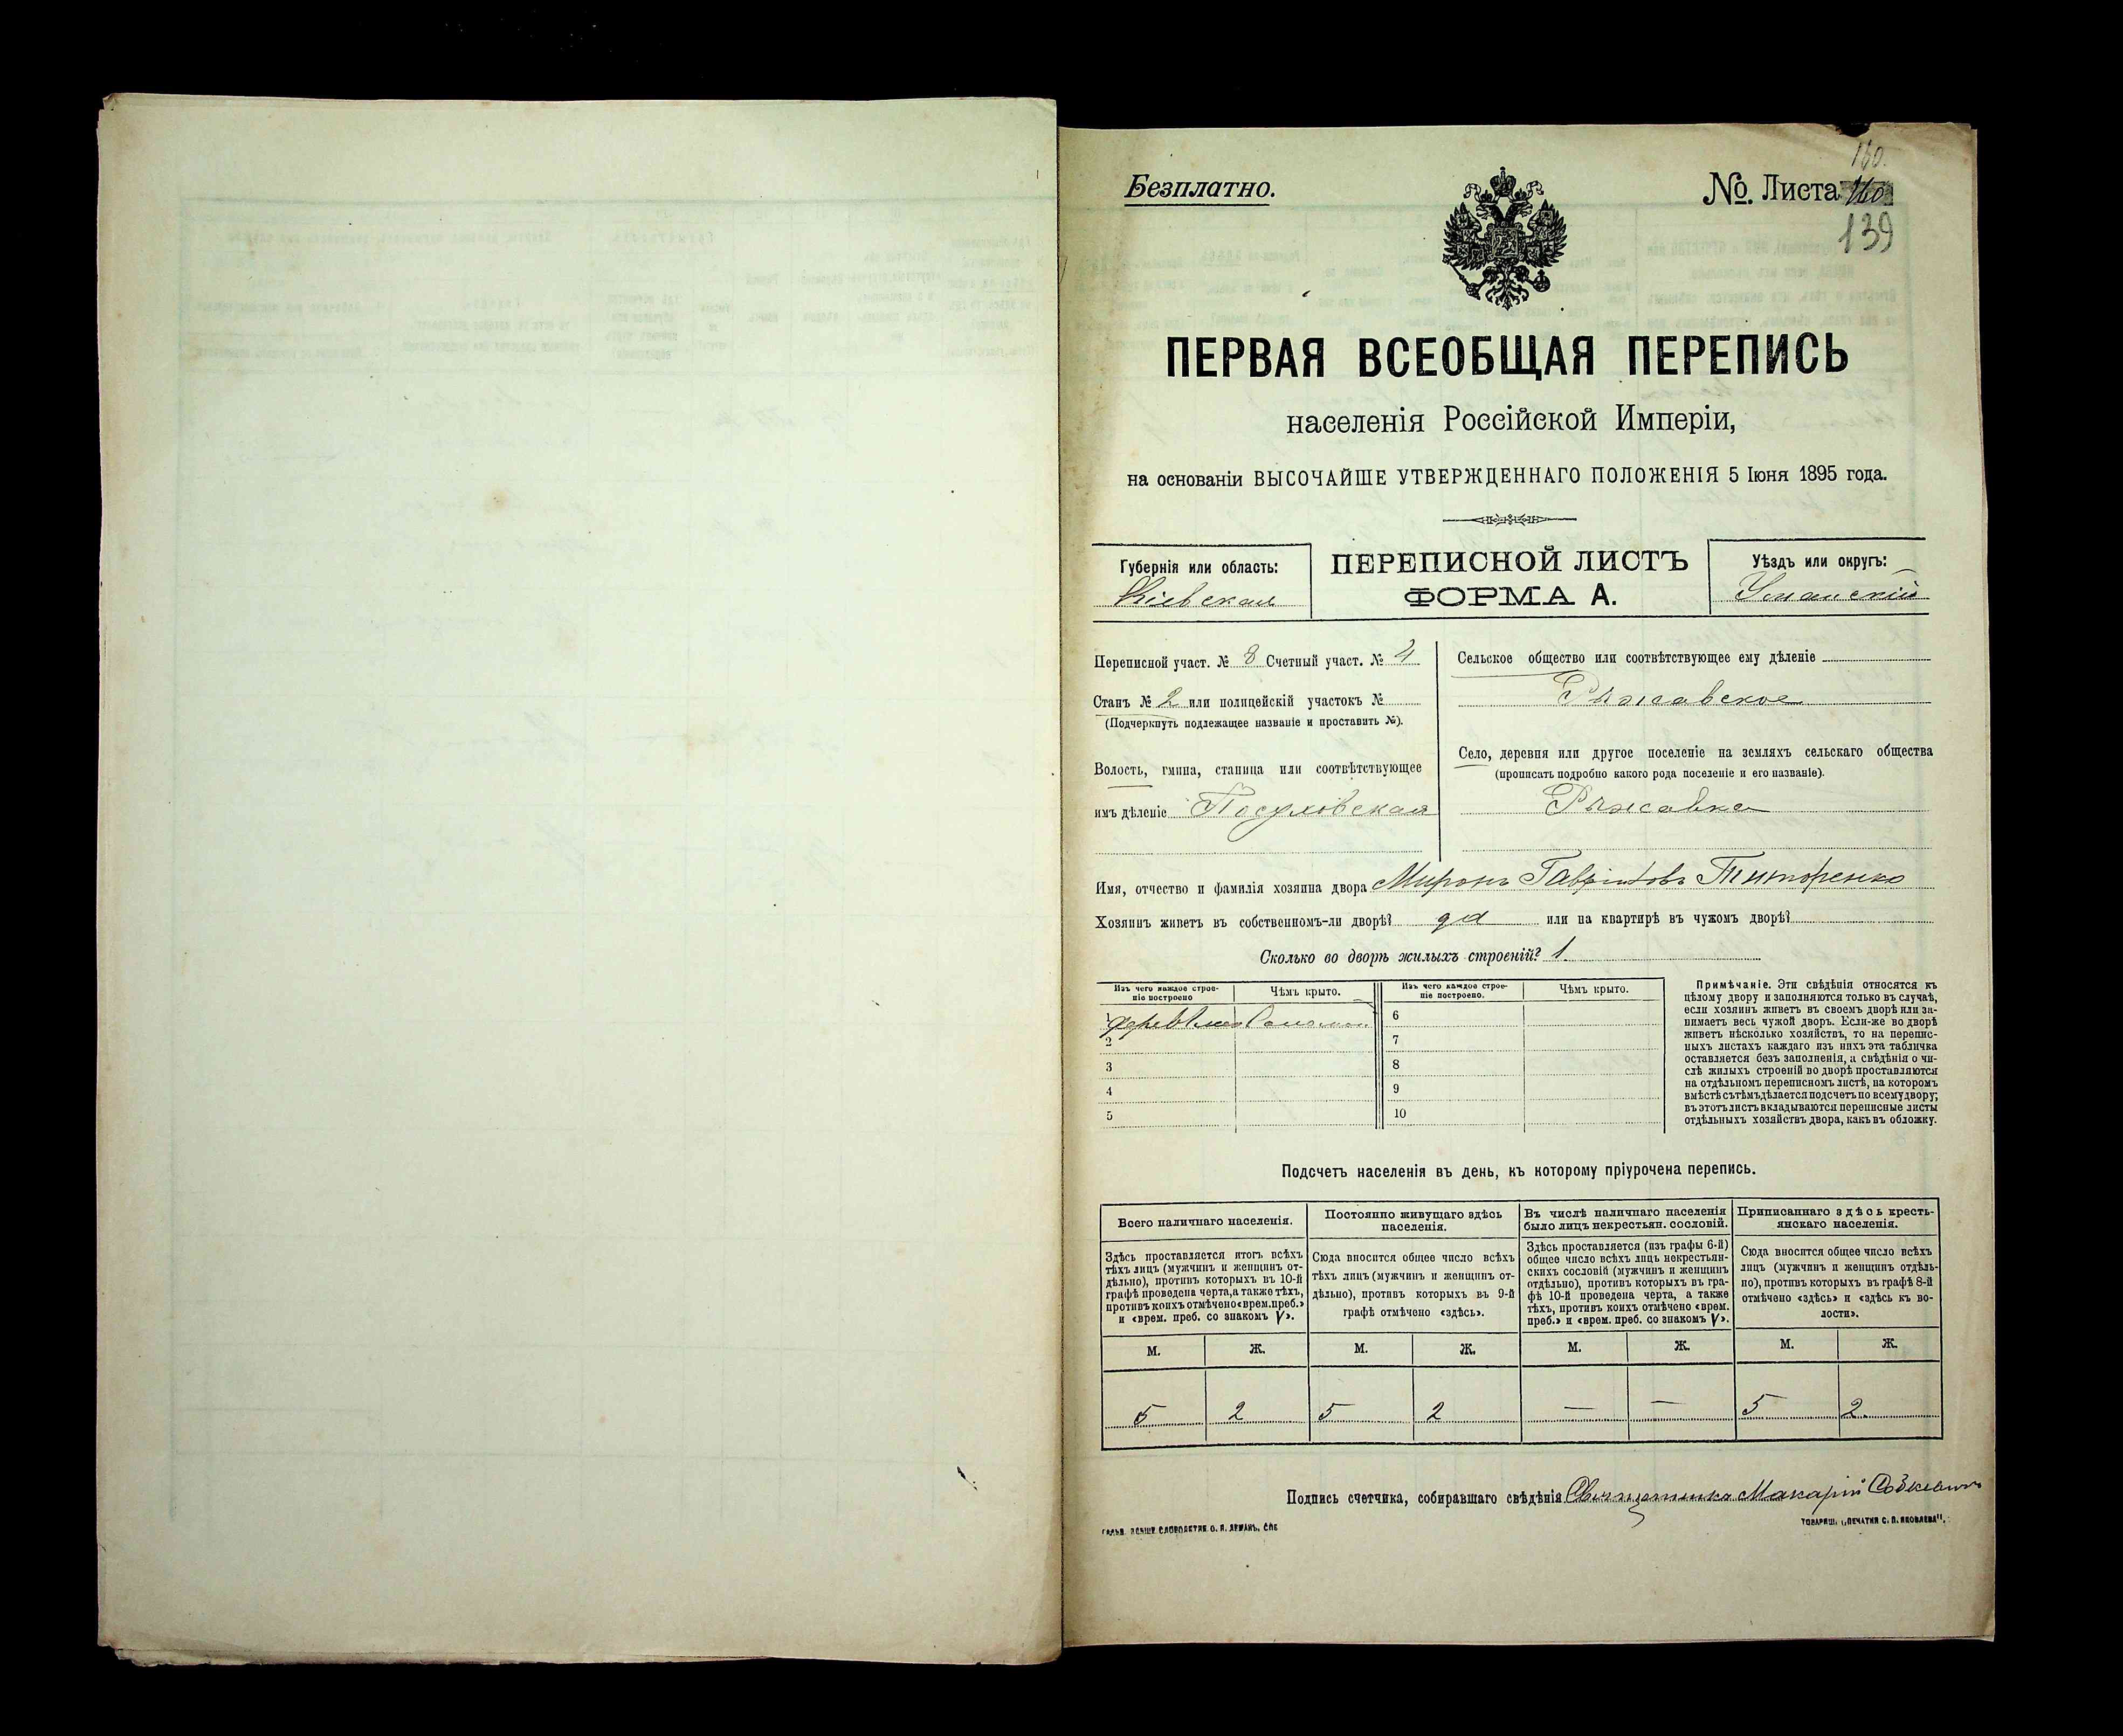 Безплатно.
№. Листа 160
160.
139
ПЕРВАЯ ВСЕОБЩАЯ ПЕРЕПИСЬ
населенія Россійской Имперіи,
на основаніи ВЫСОЧАЙШЕ УТВЕРЖДЕННАГО ПОЛОЖЕНІЯ 5 Іюня 1895 года.
Губернія или область:
Кіевская
ПЕРЕПИСНОЙ ЛИСТЪ
ФОРМА А.
Уѣздъ или округъ:
Уманскій
Переписной участ. № 8 Счетный участ. № 4
Станъ № 2 или полицейскій участокъ №
(Подчеркнуть подлежащее названіе и проставить №).
Волость, гмина, станица или соотвѣтствующее
имъ дѣленіе Посуховская
Сельское общество или соотвѣтствующее ему дѣленіе
Рыжавское
Село, деревня или другое поселеніе на земляхъ сельскаго общества
(прописать подробно какого рода поселеніе и его названіе).
Рыжавка
Имя, отчество и фамилія хозяина двора Миронъ Гавріиловъ
Хозяинъ живетъ въ собственномъ-ли дворѣ? да или на квартирѣ въ чужомъ дворѣ?
Сколько во дворѣ жилыхъ строеній? 1
Изъ чего каждое строе-
ніе построено
Чѣмъ крыто.
Изъ чего каждое строе-
ніе построено.
Чѣмъ крыто.
1 Соломой
2
3
4
5
6
7
8
9
10
Примѣчаніе. Эти свѣдѣнія относятся къ
цѣлому двору и заполняются только въ случаѣ,
если хозяинъ живетъ въ своемъ дворѣ или за-
нимаетъ весь чужой дворъ. Если-же во дворѣ
живетъ нѣсколько хозяйствъ, то на перепис-
ныхъ листахъ каждаго изъ нихъ эта табличка
оставляется безъ заполненія, а свѣдѣнія о чи-
слѣ жилыхъ строеній во дворѣ проставляются
на отдѣльномъ переписномъ листѣ, на которомъ
вмѣстѣ съ тѣмъ дѣлается подсчетъ по всему двору;
въ этотъ листъ вкладываются переписные листы
отдѣльныхъ хозяйствъ двора, какъ въ обложку.
Подсчетъ населенія въ день, къ которому пріурочена перепись.
Всего наличнаго населенія.
Постоянно живущаго здѣсь
населенія.
Въ числѣ наличнаго населенія
было лицъ некрестьян. сословій.
Приписаннаго здѣсь кресть-
янскаго населенія.
Здѣсь проставляется итогъ всѣхъ
тѣхъ лицъ (мужчинъ и женщинъ от-
дѣльно), противъ которыхъ въ 10-й
графѣ проведена черта, а также тѣхъ,
противъ коихъ отмѣчено «врем. преб.»
и «врем. преб. со знакомъ V».
Сюда вносится общее число всѣхъ
тѣхъ лицъ (мужчинъ и женщинъ от-
дѣльно), противъ которыхъ въ 9-й
графѣ отмѣчено «здѣсь».
Здѣсь проставляется (изъ графы 6-й)
общее число всѣхъ лицъ некрестьян-
скихъ сословій (мужчинъ и женщинъ
отдѣльно), противъ которыхъ въ гра-
фѣ 10-й проведена черта, а также
тѣхъ, противъ коихъ отмѣчено «врем.
преб.» и «врем. преб. со знакомъ V».
Сюда вносится общее число всѣхъ
лицъ (мужчинъ и женщинъ отдѣль-
но), противъ которыхъ въ графѣ 8-й
отмѣчено «здѣсь» и «здѣсь къ во-
лости».
М. Ж. М. Ж. М. Ж. М. Ж.
5 2 5 2 — — 5 2
Подпись счетчика, собиравшаго свѣдѣнія Макарій
ТОВАРИЩ. „ПЕЧАТНЯ С. П. ЯКОВЛЕВА".